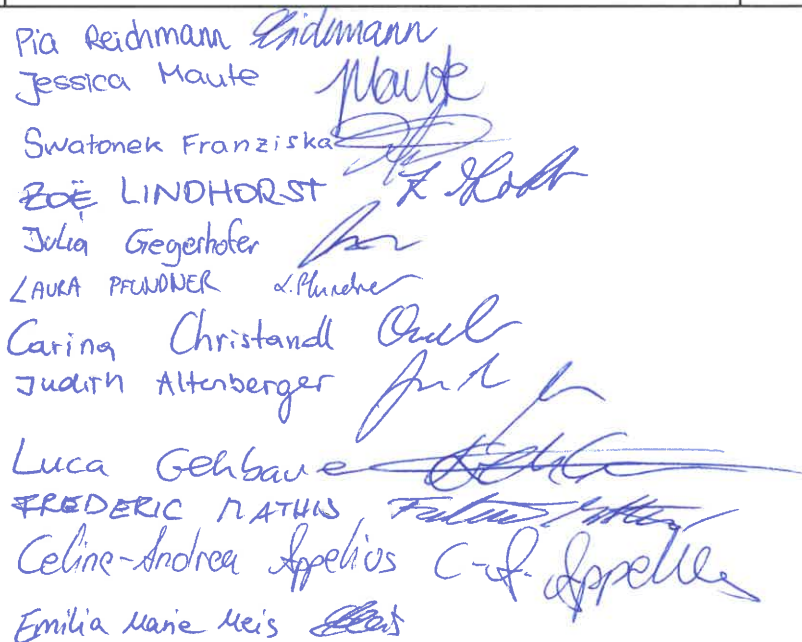 Pia Reichmann Reichmann
Jessica Maute Maute
Swatonek Franziska
ZOË LINDHORST
Julia Gegerhofer
LAURA PFUNDNER L.Pfundner
Carina Christandl
Judith Altenberger
Luca Gehbauer
FREDERIC MATHIS
Celine-Andrea Appelius C-A. Appelius
Emilia Marie Meis Meis